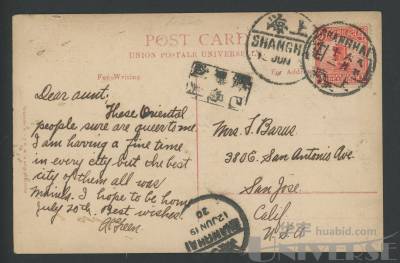 POST CARD
UNION POSTALE UNIVERSELLE
For Writing
For Addr
上海
SHANGHAI
JUN
SHANGHAI
Dear aunt:
These Oriental
people sure are queer to me.
I am having a fine time
in every city but the best
city of them all was
manila. I hope to be home
July 20th. Best wishes
A. Green.
Mrs. F. Barus
3806. San Antonio Ave.
San Jose.
Calif
U.S.A
SHANGHAI
12 JUN 19
20
华宇 huabid.com
UNIVERSE